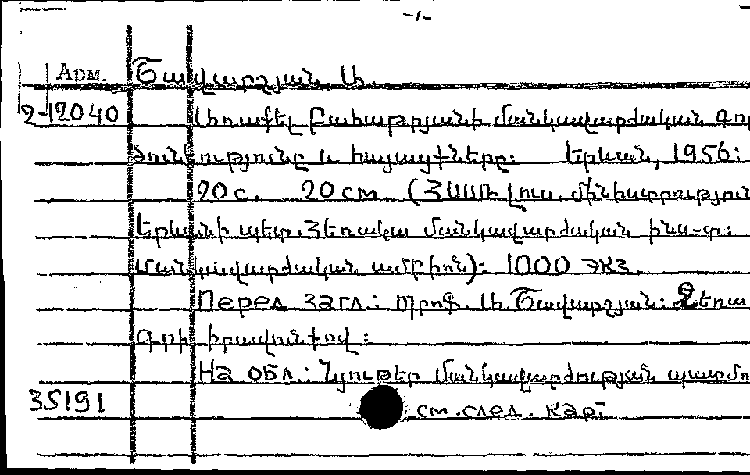 -1-
Арм. Շավարշյան Ա.
2-12040 Առաքել Բահաթրյանի մանկավարժական գոր
ծունեությունը և հայացքները: Երևան, 1956:
20 с. 20 см (ՀՍՍՌ լուս. մինիստրություն
Երևանի պետ. Հեռակա մանկավարժական ինս-տ:
Մանկավարժական ամբիոն): 1000 экз.
Перед загл.: Պրոֆ. Ա. Շավարշյան: Ձեռա
գրի իրավունքով:
На обл.: Նյութեր մանկավարժության պատմու
35191 см. след. карт